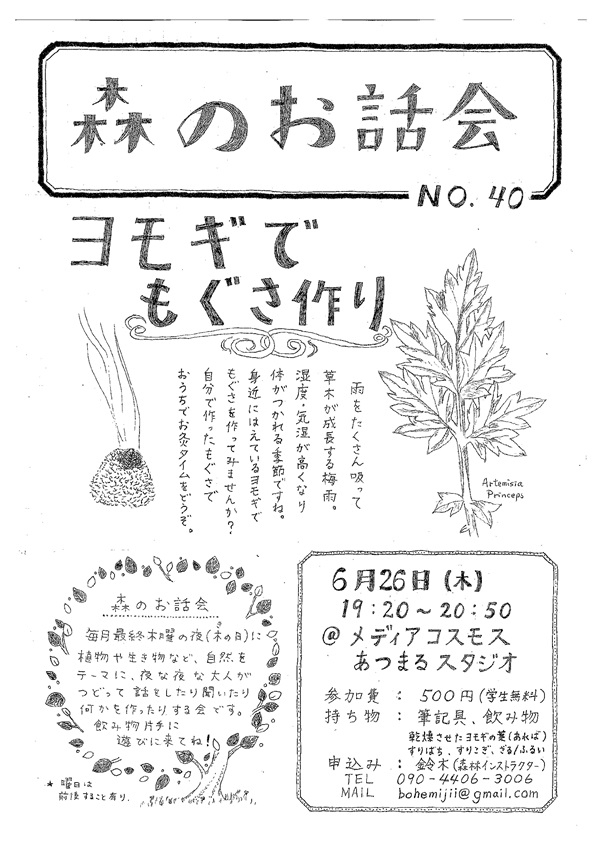 森のお話会
NO. 40
ヨモギで
もぐさ作り
雨をたくさん吸って
草木が成長する梅雨。
湿度・気温が高くなり
体がつかれる季節ですね。
身近にはえているヨモギで
もぐさを作ってみませんか?
自分で作ったもぐさで
おうちでお灸タイムをどうぞ。
Artemisia
Princeps
森のお話会
毎月最終木曜の夜(木の日)に
植物や生き物など、自然を
テーマに、夜な夜な大人が
つどって話をしたり聞いたり
何かを作ったりする会です。
飲み物片手に
遊びに来てね!
★ 曜日は
前後すること有り。
6月26日(木)
19:20〜20:50
@メディアコスモス
あつまるスタジオ
参加費 : 500円(学生無料)
持ち物 : 筆記具、飲み物
乾燥させたヨモギの葉(あれば)
すりばち、すりこぎ、ざる/ふるい
申込み : 鈴木(森林インストラクター)
TEL 090-4406-3006
MAIL bohemijii@gmail.com